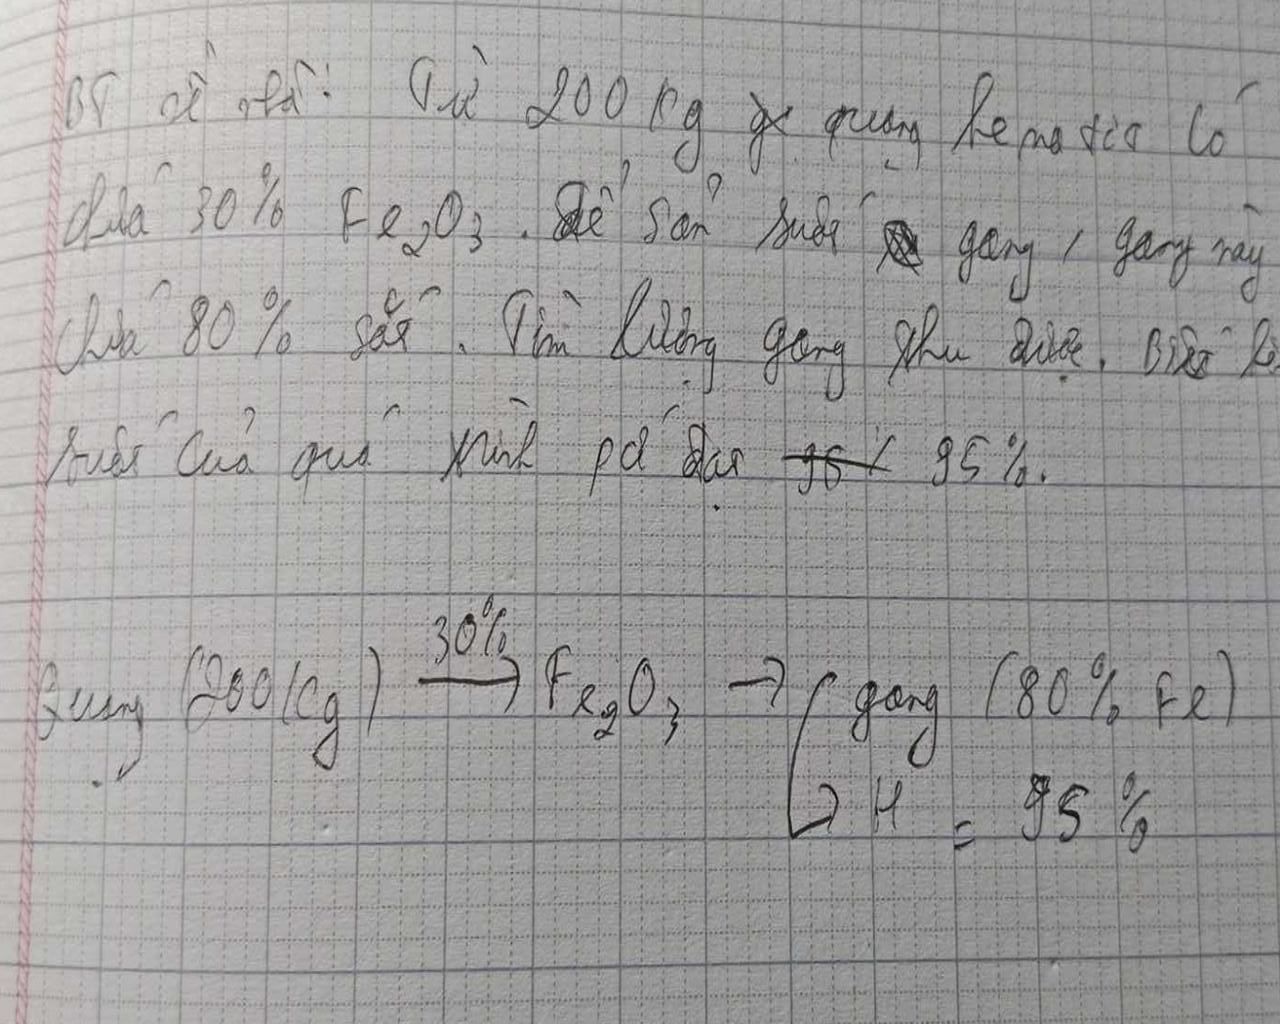 BT về nhà: Từ 200 Kg quặng hematit có
chứa 30% Fe2O3. Để sản xuất gang, gang này
chứa 80% sắt. Tìm lượng gang thu được. Biết
suất của quá trình pứ đạt 95%.
Quặng (200 Kg) 30%→ Fe2O3 → gang (80% Fe)
→ H = 95%